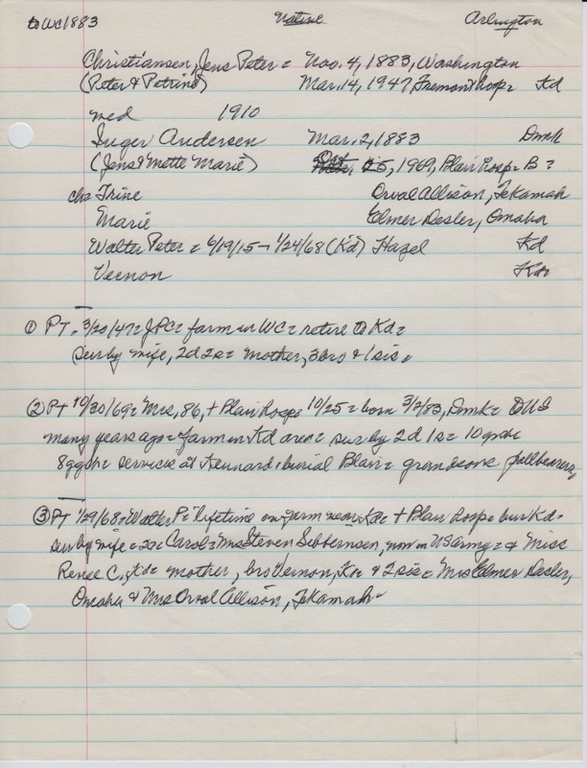 to WC 1883 Native Arlington
Christiansen, Jens Peter = Nov. 4, 1883, Washington
(Peter & Petrine) Mar. 14, 1947 Fremont hosp = Kd
med 1910
Inger Andersen Mar. 2, 1883 Dmk
(Jens & Mette Marie) Oct. 25, 1969, Blair hosp = B =
chn Trine Orval Allison, Tekamah
Marie Elmer Desler, Omaha
Walter Peter = 6/19/15 - 1/24/68 (Kd) Hazel Kd
Vernon Kd
① PT = 3/20/47 = JPC = farm in WC = retire to Kd =
sur by wife, 2d 2s = mother, 3 bro & 1 sis =
② PT 10/30/69 = Mrs, 86, + Blair hosp 10/25 = born 3/2/83, Dmk = to US
many years ago = farm in Kd area = sur by 2d 1s = 10 gch =
8 ggch = services at Kennard, burial Blair = grandsons pallbearers
③ PT 1/29/68 = Walter P = lifetime on farm near Kd = + Blair hosp = bur Kd =
sur by wife = 2d = Carol = Mrs Steven Sibbernsen, now in US army = & Miss
Renee C., Kd = mother, bro Vernon, Kn & 2 sis = Mrs Elmer Desler,
Omaha & Mrs Orval Allison, Tekamah